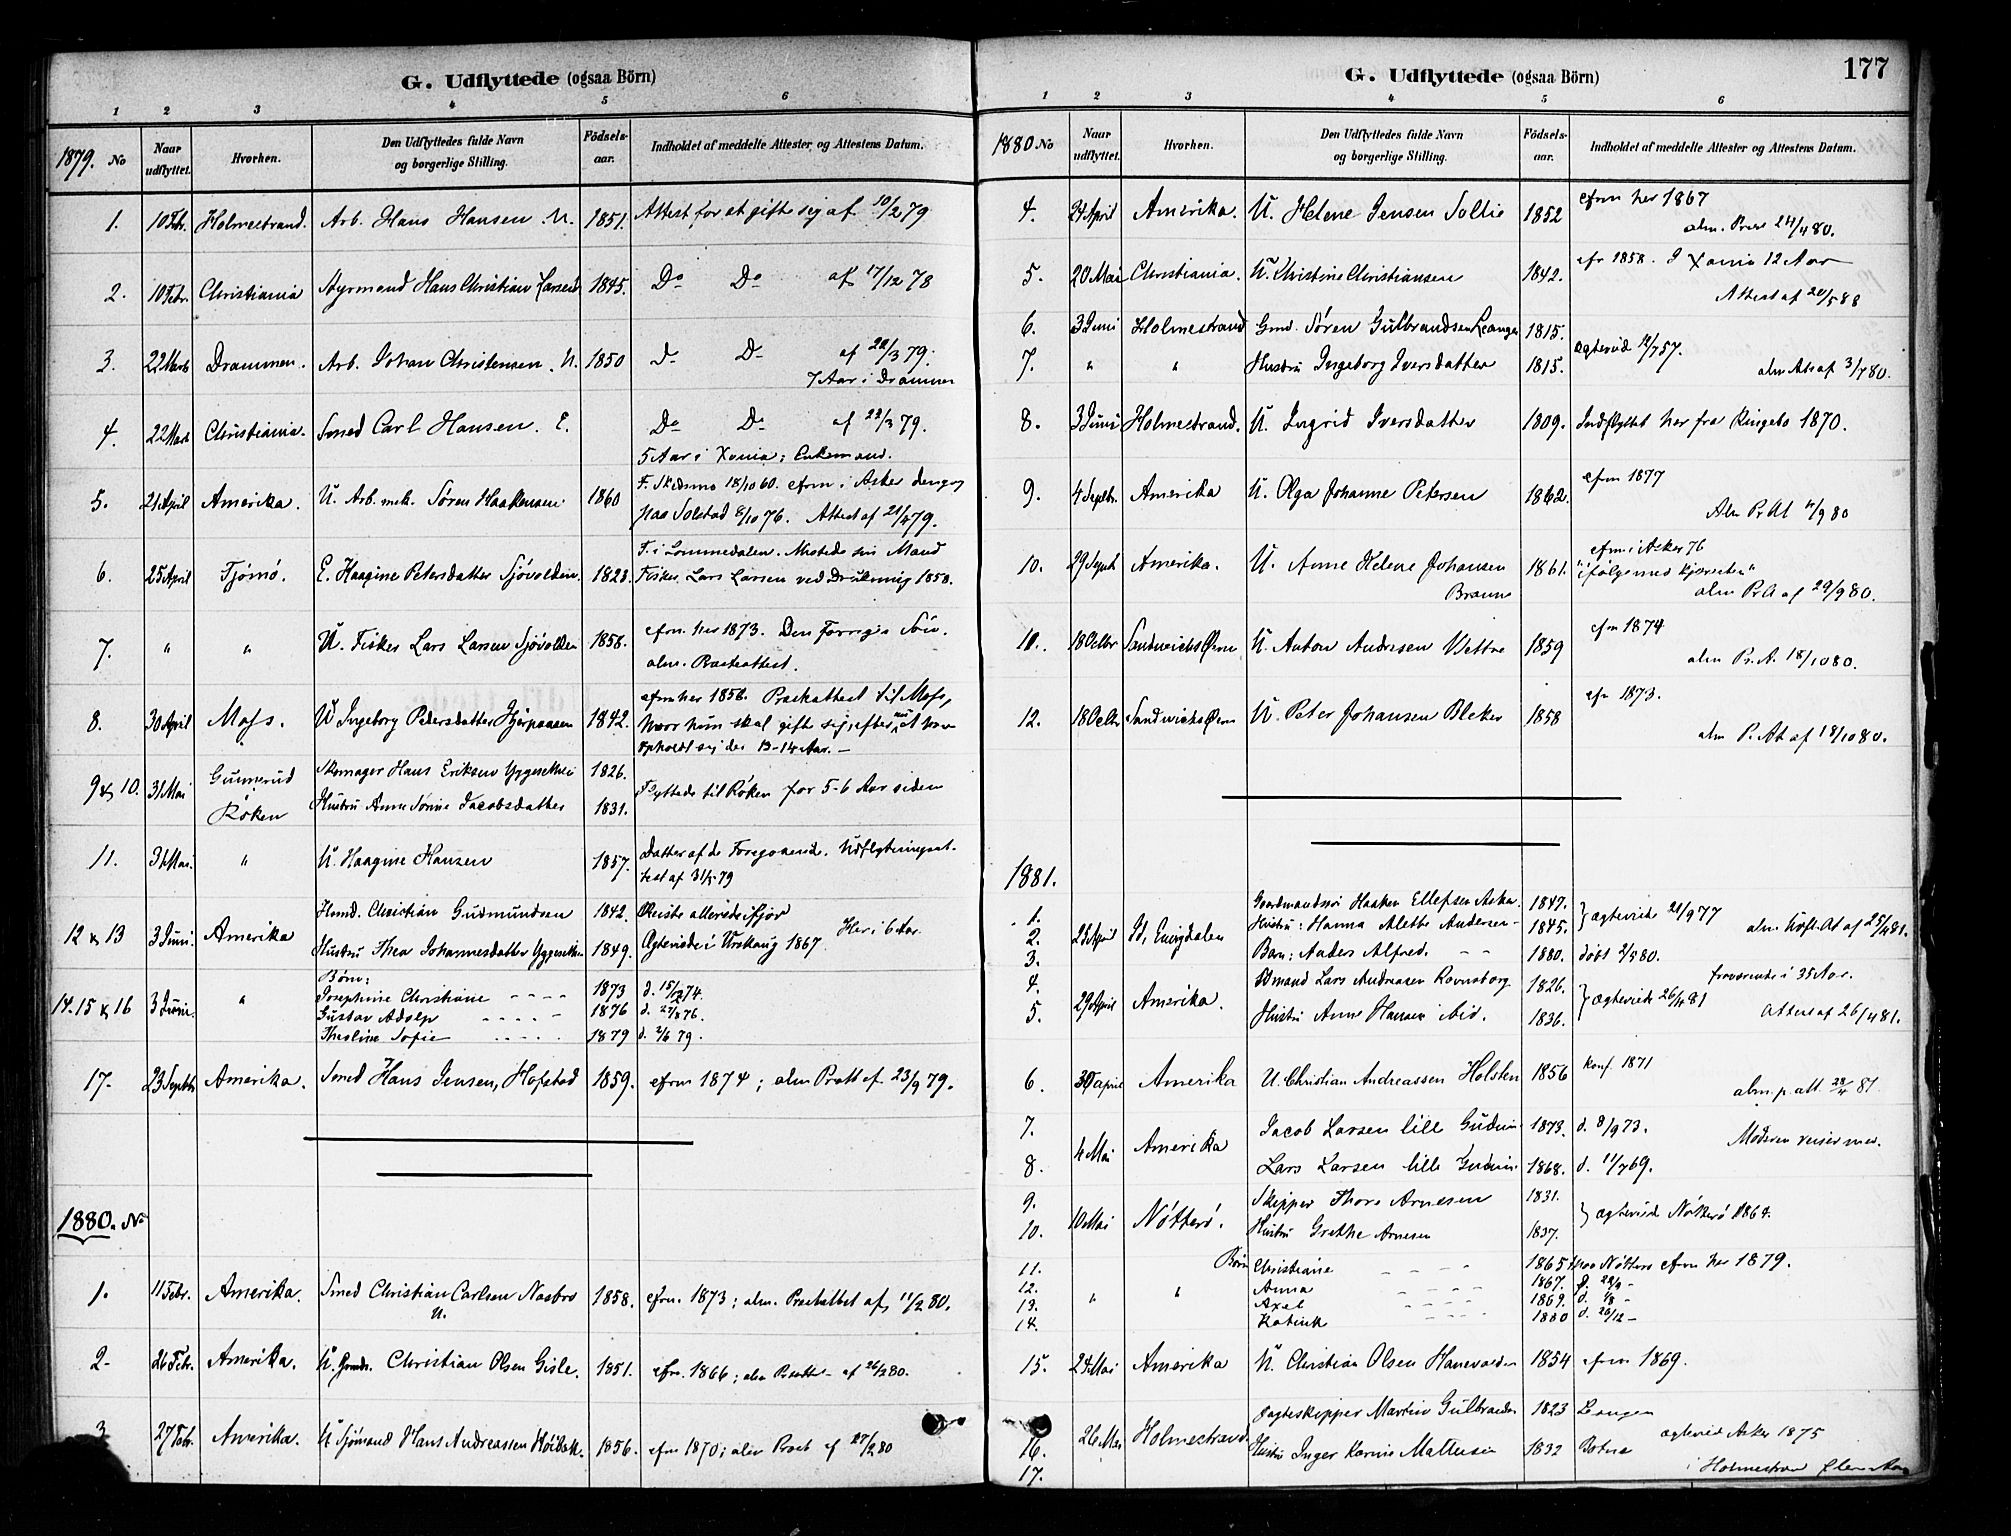 G. Udflyttede (ogsaa Börn)
1 2 3 4 5 6
1879. No Naar udflyttet. Hvorhen. Den Udflyttedes fulde Navn og borgerlige Stilling. Födsels-aar. Indholdet af meddelte Attester og Attestens Datum.
1. 10 Febr. Holmestrand. Arb. Hans Hansen U. 1851. Attest for at gifte sig af 10/2 79
2. 10 Febr. Christiania Styrmand Hans Christian Larsen 1845. Do Do af 17/12 78
3. 22 Marts Drammen. Arb. Johan Christensen. U. 1850 Do Do af 22/3 79.
7 Aar i Drammen
4. 22 Marts Christiania. Smed Carl Hansen. E. Do Do af 22/3 79.
5 Aar i Xania; Enkemand.
5. 21 April Amerika. U. Arb. Søren Haakensen 1860 F. Skedsmo 18/10 60. cfrm i Asker
paa Solstad 8/10 76. Attest af 21/4 79.
6. 25 April Tjömö. E. Haagine Petersdatter Sjövolden 1823. F. i Lommedalen. Mistede sin Mand
Fisker Lars Larsen ved Drukning 1858.
7. " " U. Fisker Lars Larsen Sjövolden 1856. cfrm. her 1873. Den Forriges Sön.
alm. Presteattest.
8. 30 April Moss. U Ingeborg Petersdatter 1842. cfrm her 1856. Prestattest til Moss,
hvor hun skal gifte sig efter at have
opholdt sig der 13-14 Aar. —
9 & 10. 31 Mai Gunnerud Skomager Hans Eriksen Yggesethei 1826.
Röken Hustru Anne Sörine Jacobsdatter 1831. Flyttede til Röken for 5-6 Aar siden
11. 31 Mai. " U. Haagine Hansen 1857. Datter af de Foregaaende. Udflytningsat-
test af 31/5 79
12 & 13 3 Juni Amerika Husmd. Christian Gudmundsen 1842. Reiste allerede ifjor
Hustru Thea Johannesdatter Yggesethei 1849. Ægteviede i Urskoug 1867 Her i 6 Aar.
14. 15 & 16 3 Juni. " Börn:
Josephine Christiane - - - - 1873 d. 15/2 74.
Gustav Adolf - - - - 1876 d. 27/8 76.
Theoline Sofie - - - - 1879 d. 2/6 79.
17. 23 Septbr Amerika. Smed Hans Jensen, Hofstad 1859. cfrm 1874; alm Pratt af 23/9 79.
1880. No
1. 11 Febr. Amerika. Smed Christian Carlsen Næsbro 1858. cfrm. 1873; alm. Presteattest af 11/2 80.
U.
2- 26 Febr. Amerika. U. Grmds. Christian Olsen Gisle. 1851. cfrm. 1866; alm af 26/2 80.
3 27 Febr. Amerika. U Sjömand Hans Andreassen 1856. cfrm 1870; alm Prest af 27/2 80
G. Udflyttede (ogsaa Börn) 177
1 2 3 4 5 6
1880. No Naar udflyttet. Hvorhen. Den Udflyttedes fulde Navn og borgerlige Stilling. Födsels-aar. Indholdet af meddelte Attester og Attestens Datum.
4. 24 April Amerika. U. Helene Jensen Soltie 1852 cfrm her 1867
alm. Prest 24/4 80.
5. 20 Mai Christiania. U. Christine Christiansen 1842. cfr 1858. I Xania 12 Aar
Attest af 20/5 88
6. 3 Juni Holmestrand Grmd. Søren Gulbrandsen Leangen 1815.
7. " " Hustru Ingeborg Iversdatter 1815. ægtevied 12/7 57.
alm At af 3/7 80.
8. 3 Juni Holmestrand. U. Ingrid Iversdatter 1809. Indflyttet her fra Ringebo 1870.
9. 4 Septbr. Amerika U. Olga Johanne Petersen 1862. cfrm 1877
Alm Pr At 4/9 80
10. 29 Septb Amerika. U. Anne Helene Johansen 1861. cfrm i Asker 76
Braune "ifölge med Kjæresten"
alm Pr A af 29/9 80.
10. 18 Octbr Sandwichs Öerne U. Anton Andresen Vettre 1859 cfrm 1874
alm Pr. A. 18/10 80.
12. 18 Octbr Sandwichs Öerne U. Peter Johansen Bleker 1858 cfr 1873.
alm Pr. At af 18/10 80.
1881.
1. Gaardmandssön Haaken Ellefsen Asker. 1847.
2. 25 April Id, Enningdalen Hustru: Hanna Alette Andersen - 1845. } ægteviede 21/9 77 alm. Udfl. At af 25/4 81.
3. Barn: Anders Alfred. - - 1880. döbt 2/5 80.
4. Lars Andreasen Ravnsborg 1826. fraværende i 35 Aar.
5. 29 April Amerika. Hustru Anne Hansen ibid. 1836. } ægteviede 26/4 81
Attest af 26/4 81.
6. 30 April Amerika U. Christian Andreassen Holsten 1856 Konf. 1871
alm. p. att. 28/4 81.
7. 4 Mai Amerika Jacob Larsen lille 1873. d. 8/9 73. Moderen reiser med.
8. Lars Larsen lille 1868. d. 11/7 69.
9. Skipper Thore Arnesen 1831.
10. 10 Mai Nötterö. Hustru Grethe Arnesen 1837. } ægteviede Nötterö 1864.
11. Börn Christiane - - - - 1865 Nötterö cfrm her 1879.
12. Anna - - - - 1867. f. 22/9 -
13. " " Axel - - - - 1869. d. 1/8 -
14. Katinck - - - 1880 d. 26/12 -
15. 24 Mai Amerika U. Christian Olsen 1854 cfrm 1869.
16. 26 Mai Holmestrand Jagteskipper Martin Gulbrandsen 1823 Leangen
17. Hustru Inger Karine Mathisen 1832 Botne ægteviede Asker 1875
i Holmestrand flere Aar